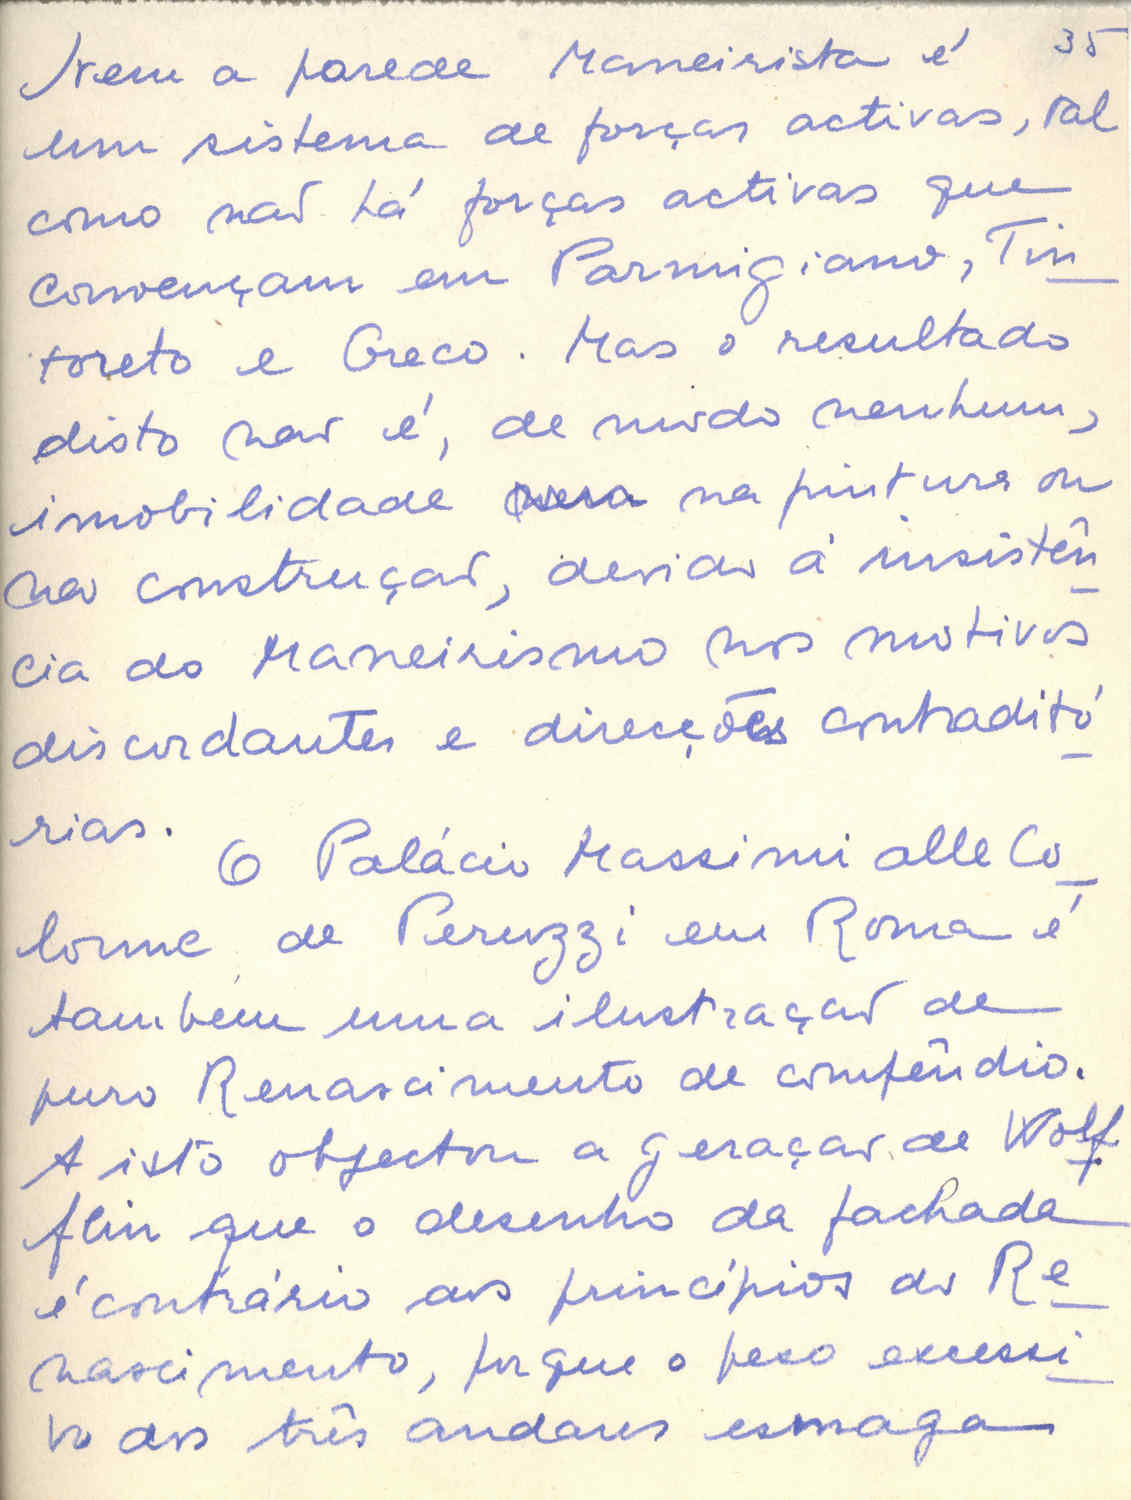 35
Nem a parede Maneirista é
um sistema de forças activas, tal
como não há forças activas que
convençam em Parmigiano, Tin
toreto e Greco. Mas o resultado
disto não é, de modo nenhum,
imobilidade na pintura ou
na construção, devido à insistên
cia do Maneirismo nos motivos
discordantes e direcções contraditó
rias.
O Palácio Massimi alle Co
lonne de Peruzzi em Roma é
também uma ilustração de
puro Renascimento de compêndio.
A isto objectou a geração de Wolf
flin que o desenho da fachada
é contrário aos princípios do Re
nascimento, porque o peso excessi
vo dos três andares esmaga